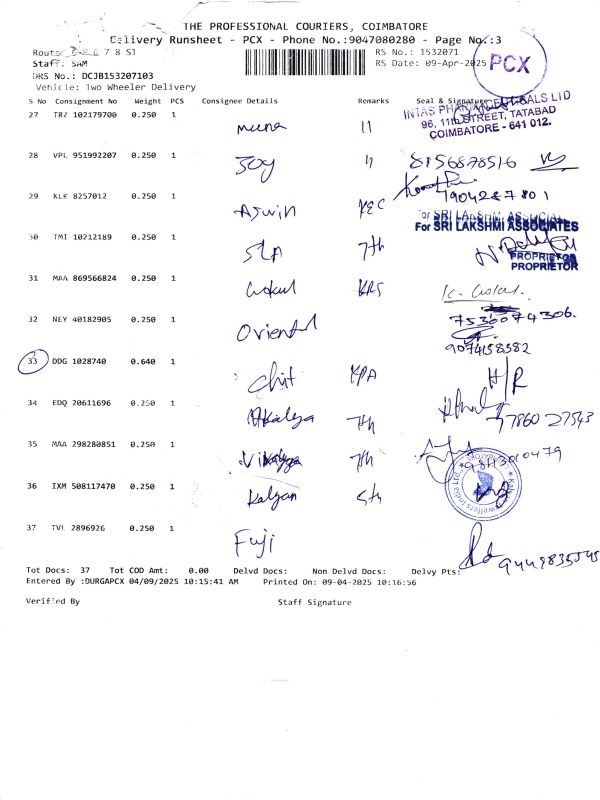 THE PROFESSIONAL COURIERS, COIMBATORE
Delivery Runsheet - PCX - Phone No.:9047080280 - Page No.:3
Route: 7 8 ST
RS No.: 1532071
Staff: SAM
RS Date: 09-Apr-2025
PCX
DRS No.: DCJB153207103
Vehicle: Two Wheeler Delivery
S No Consignment No Weight PCS Consignee Details Remarks Seal & Signature
INTAS PHARMACEUTICALS LTD
96, 11th STREET, TATABAD
COIMBATORE - 641 012.
27 TRZ 102179700 0.250 1 muna 11
28 VPL 951992207 0.250 1 Joy 11 8156878516
29 KLK 8257012 0.250 1 Aswin KEC 7904287801
For SRI LAKSHMI ASSOCIATES
30 TMI 10212189 0.250 1 SLA 7th
PROPRIETOR
31 MAA 869566824 0.250 1 Gokul KRS K. Gokul.
32 NEY 40182905 0.250 1 Oriental 7530074306.
9074158382
33 DDG 1028740 0.640 1 Chit KPA H/R
34 EDQ 20611696 0.250 1 Akalya 7th 77860 27543
35 MAA 298280851 0.250 1 7th
36 IXM 508117470 0.250 1 Kalyan 5th
37 TVL 2896926 0.250 1 Fuji
Tot Docs: 37 Tot COD Amt: 0.00 Delvd Docs: Non Delvd Docs: Delvy Pts:
Entered By :DURGAPCX 04/09/2025 10:15:41 AM Printed On: 09-04-2025 10:16:56
Verified By Staff Signature